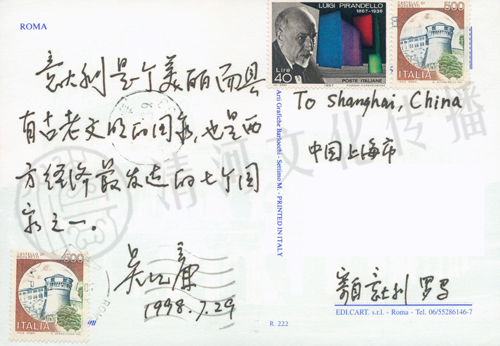 ROMA
意大利是个美丽而具
有古老文明的国家,也是西
方经济最发达的七个国
家之一。
1998.7.29
LUIGI PIRANDELLO
1867-1936
Lire
40
POSTE ITALIANE
500
ITALIA
To Shanghai, China
中国上海市
寄自意大利罗马
EDI.CART. s.r.l. - Roma - Tel. 06/55286146-7
R. 222
Arti Grafiche Barlocchi - Settimo M. - PRINTED IN ITALY
500
ITALIA
清河文化传播